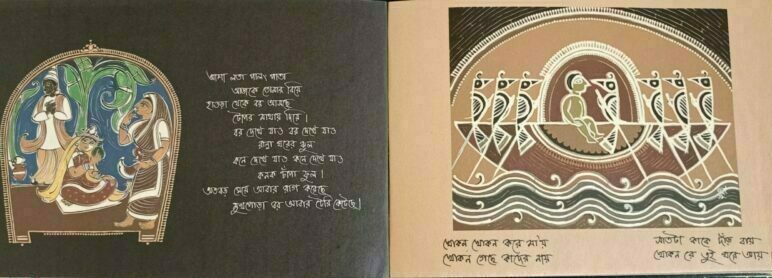 আশা লতা পালং পাতা
আজকে তোমার বিয়ে
হাওড়া থেকে বর আসছে
টোপর মাথায় দিয়ে।
বর দেখে যাও বর দেখে যাও
রান্না ঘরের ঝুল
কনে দেখে যাও কনে দেখে যাও
কনক চাঁপা ফুল।
মেয়ে আবার করেছে
মুখপোড়া বর আবার টেরি কেটেছে।
খোকন খোকন করে মা'য়
খোকন গেছে কাদের নায়
সাতটা কাকে দাঁড় বায়
খোকন রে তুই ঘরে আয়